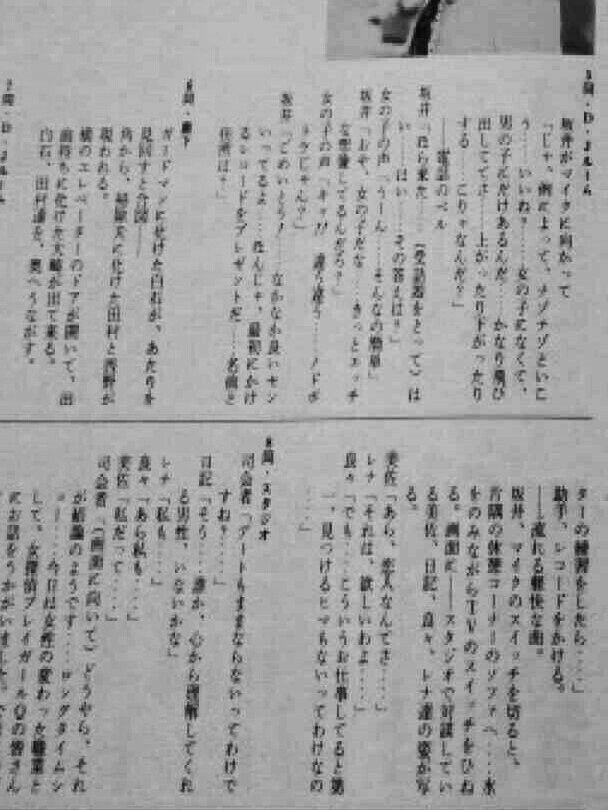 5階・D・Jルーム
坂井がマイクに向かって
「じゃ、例によって、ナゾナゾといこ
う……いいね?……女の子になくて、
男の子にだけあるんだ……かなり飛び
出しててさ……上がったり下がったり
する……こりゃなんだ?」
――電話のベル
坂井「ほら来た……(受話器をとって)は
い……はい……その答えは?」
女の子の声「うーん……そんなの簡単」
坂井「おや、女の子だな……きっとエッチ
な想像してるんだろ?」
女の子の声「キャ!! 違う違う……ノドボ
トケじゃん?」
坂井「ごめいとう!……なかなか良いセン
いってるよ……ほんじゃ、最初にかけ
るレコードをプレゼントだ……名前と
住所は?」
8階・廊下
ガードマンに化けた白石が、あたりを
見回すと合図――
角から、掃除夫に化けた田村と浅野が
現われる。
横のエレベーターのドアが開いて、出
前持ちに化けた大崎が出て来る。
白石、田村達を、奥へうながす。
D・Jルーム
ターの練習をしたら……」
助手、レコードをかける。
――流れる軽快な曲。
坂井、マイクのスイッチを切ると、
片隅の休憩コーナーのソファへ……水
をのみながらTVのスイッチをひね
る。画面に――スタジオで対談してい
る美佐、日記、良々、レナ達の姿が写
る。
美佐「あら、恋人なんてさ……」
レナ「それは、欲しいわよ……」
良々「でも……こういうお仕事してると第
一、見つけるヒマもないってわけなの
……」
8階・スタジオ
司会者「デートもままならないってわけで
すね?……」
日記「そう……誰か、心から理解してくれ
る男性、いないかな」
レナ「私も……」
良々「あら私も……」
美佐「私だって……」
司会者「(画面に向いて)どうやら、それ
が結論のようです……ロングタイムシ
ョー……今日は女性の変わった職業と
して、女探偵プレイガールQの皆さん
にお話をうかがいました。